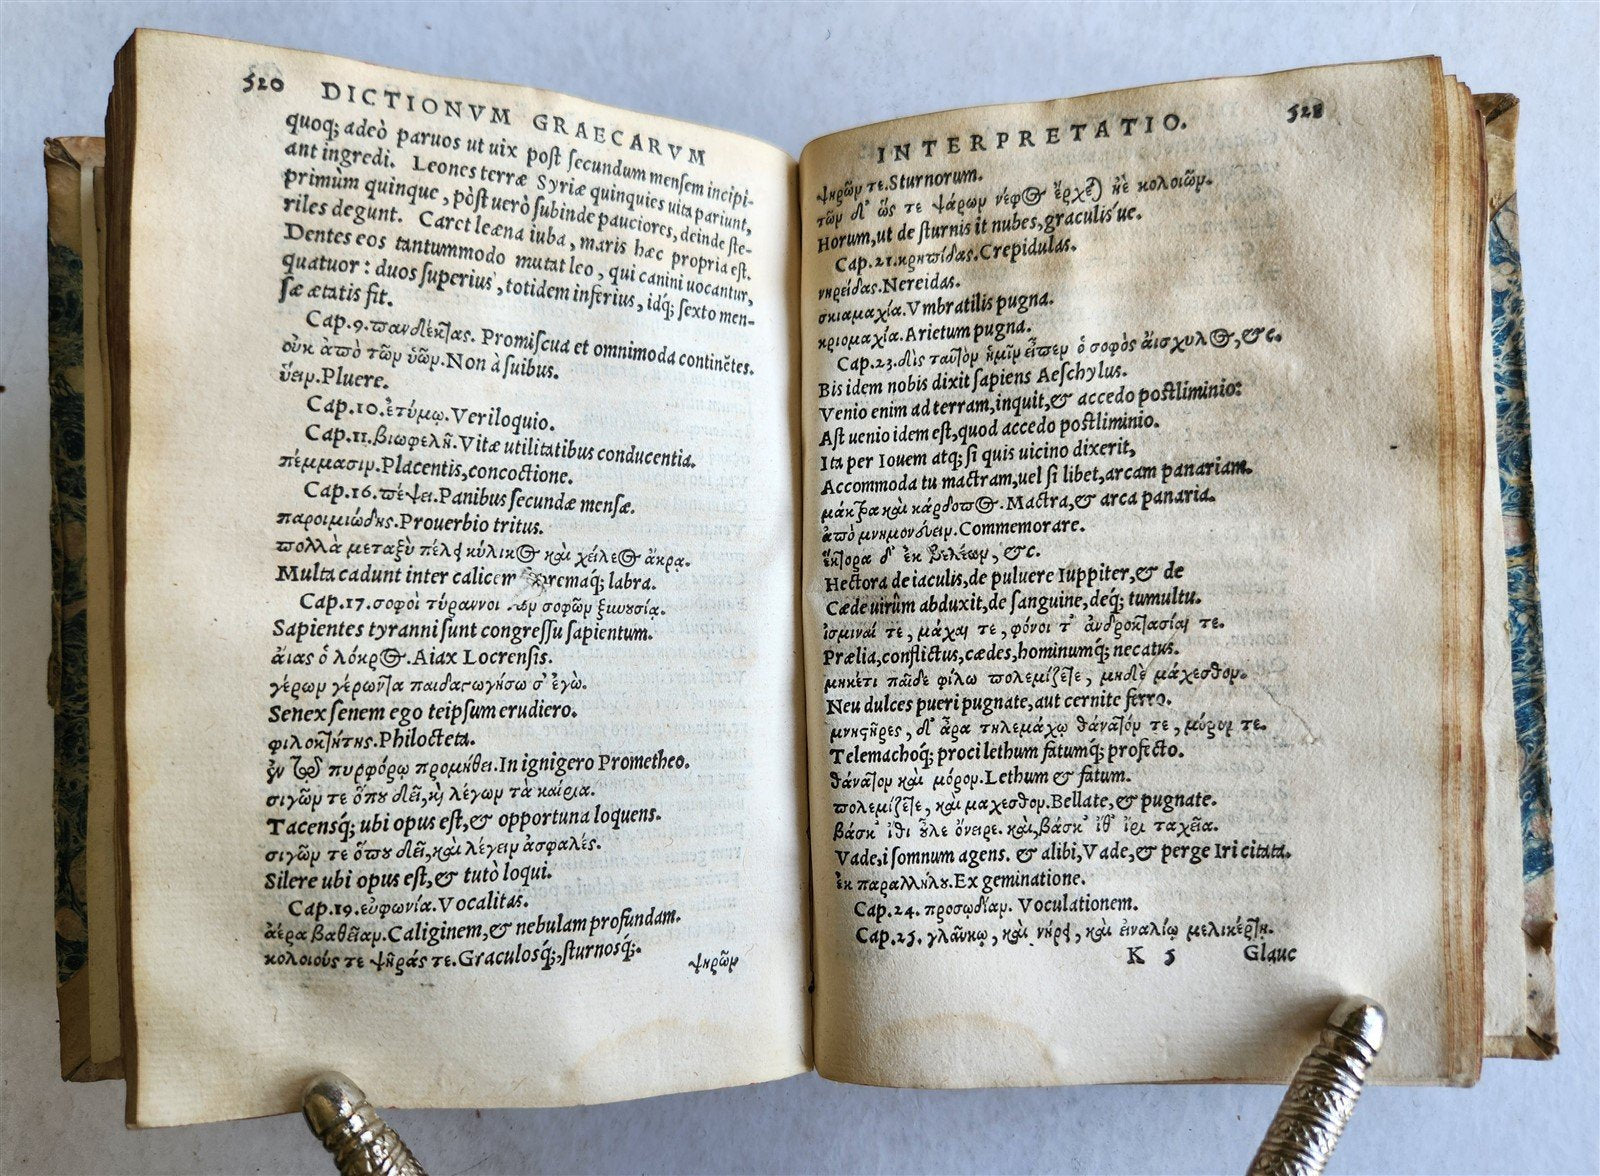 520 DICTIONVM GRAECARVM
quoq; adeò paruos ut uix post secundum mensem incipi-
ant ingredi. Leones terræ Syriæ quinquies uita pariunt,
primùm quinque, pòst uerò subinde pauciores, deinde ste-
riles degunt. Caret leæna iuba, maris hæc propria est.
Dentes eos tantummodo mutat leo, qui canini uocantur,
quatuor: duos superius, totidem inferius, idq; sexto men-
sæ ætatis fit.
Cap. 9. πανδέκτας. Promiscua et omnimoda continētes.
οὐκ ἀπὸ τῶν ὑῶν. Non à suibus.
ὕειν. Pluere.
Cap. 10. ἐτύμῳ. Veriloquio.
Cap. 11. βιωφελῆ. Vitæ utilitatibus conducentia.
πέμμασιν. Placentis, concoctione.
Cap. 16. πέψει. Panibus secundæ mensæ.
παροιμιώδης. Prouerbio tritus.
πολλὰ μεταξὺ πέλει κύλικος καὶ χείλεος ἄκρα.
Multa cadunt inter calicem remaq; labra.
Cap. 17. σοφοὶ τύραννοι τῶν σοφῶν ξυνουσίᾳ.
Sapientes tyranni sunt congressu sapientum.
ἄιας ὁ λόκρος. Aiax Locrensis.
γέρων γέροντα παιδαγωγήσω σ' ἐγὼ.
Senex senem ego teipsum erudiero.
φιλοκτήτης. Philocteta.
ἐν τῷ πυρφόρῳ προμηθεῖ. In ignigero Prometheo.
σιγῶν τε ὅπου δεῖ, καὶ λέγων τὰ καίρια.
Tacensq; ubi opus est, & opportuna loquens.
σιγῶν τε ὅπου δεῖ, καὶ λέγειν ἀσφαλές.
Silere ubi opus est, & tutò loqui.
Cap. 19. εὐφωνία. Vocalitas.
ἀέρα βαθεῖαν. Caliginem, & nebulam profundam.
κολοιούς τε ψῆράς τε. Graculosq;, sturnosq;.
ψηρῶν
INTERPRETATIO. 521
ψηρῶν τε. Sturnorum.
τῶν δ' ὥς τε ψάρων νέφος ἔρχεται ἠὲ κολοιῶν.
Horum, ut de sturnis it nubes, graculis'ue.
Cap. 21. κρηπίδας. Crepidulas.
νηρείδας. Nereidas.
σκιαμαχία. Vmbratilis pugna.
κριομαχία. Arietum pugna.
Cap. 23. δὶς ταυτὸν ἡμῖν εἶπεν ὁ σοφὸς αἴσχυλος, &c.
Bis idem nobis dixit sapiens Aeschylus.
Venio enim ad terram, inquit, & accedo postliminio:
Ast uenio idem est, quod accedo postliminio.
Ita per Iouem atq; si quis uicino dixerit,
Accommoda tu mactram, uel si libet, arcam panariam.
μάκτρα καὶ κάρδοπος. Mactra, & arca panaria.
ἀπὸ μνημονεύειν. Commemorare.
ἕκτορα δ' ἐκ βελέων, &c.
Hectora de iaculis, de puluere Iuppiter, & de
Cæde uirûm abduxit, de sanguine, deq; tumultu.
ὑσμιναί τε, μάχαι τε, φόνοι τ' ἀνδροκτασίαι τε.
Prælia, conflictus, cædes, hominumq; necatus.
μηκέτι παῖδε φίλω πολεμίζετε, μηδὲ μάχεσθον.
Neu dulces pueri pugnate, aut cernite ferro.
μνηστῆρες, δ' ἄρα τηλεμάχῳ θάνατόν τε, μόρον τε.
Telemachoq; proci lethum fatumq; profecto.
θάνατον καὶ μόρον. Lethum & fatum.
πολεμίζετε, καὶ μαχεσθον. Bellate, & pugnate.
βάσκ' ἴθι οὖλε ὄνειρε. καὶ, βάσκ' ἴθ' ἶρι ταχεῖα.
Vade, i somnum agens. & alibi, Vade, & perge Iri citata.
ἐκ παραλλήλου. Ex geminatione.
Cap. 24. προσῳδίαν. Voculationem.
Cap. 25. γλαύκῳ, καὶ νηρεῖ, καὶ εἰναλίῳ μελικέρτῃ.
K 5 Glauc